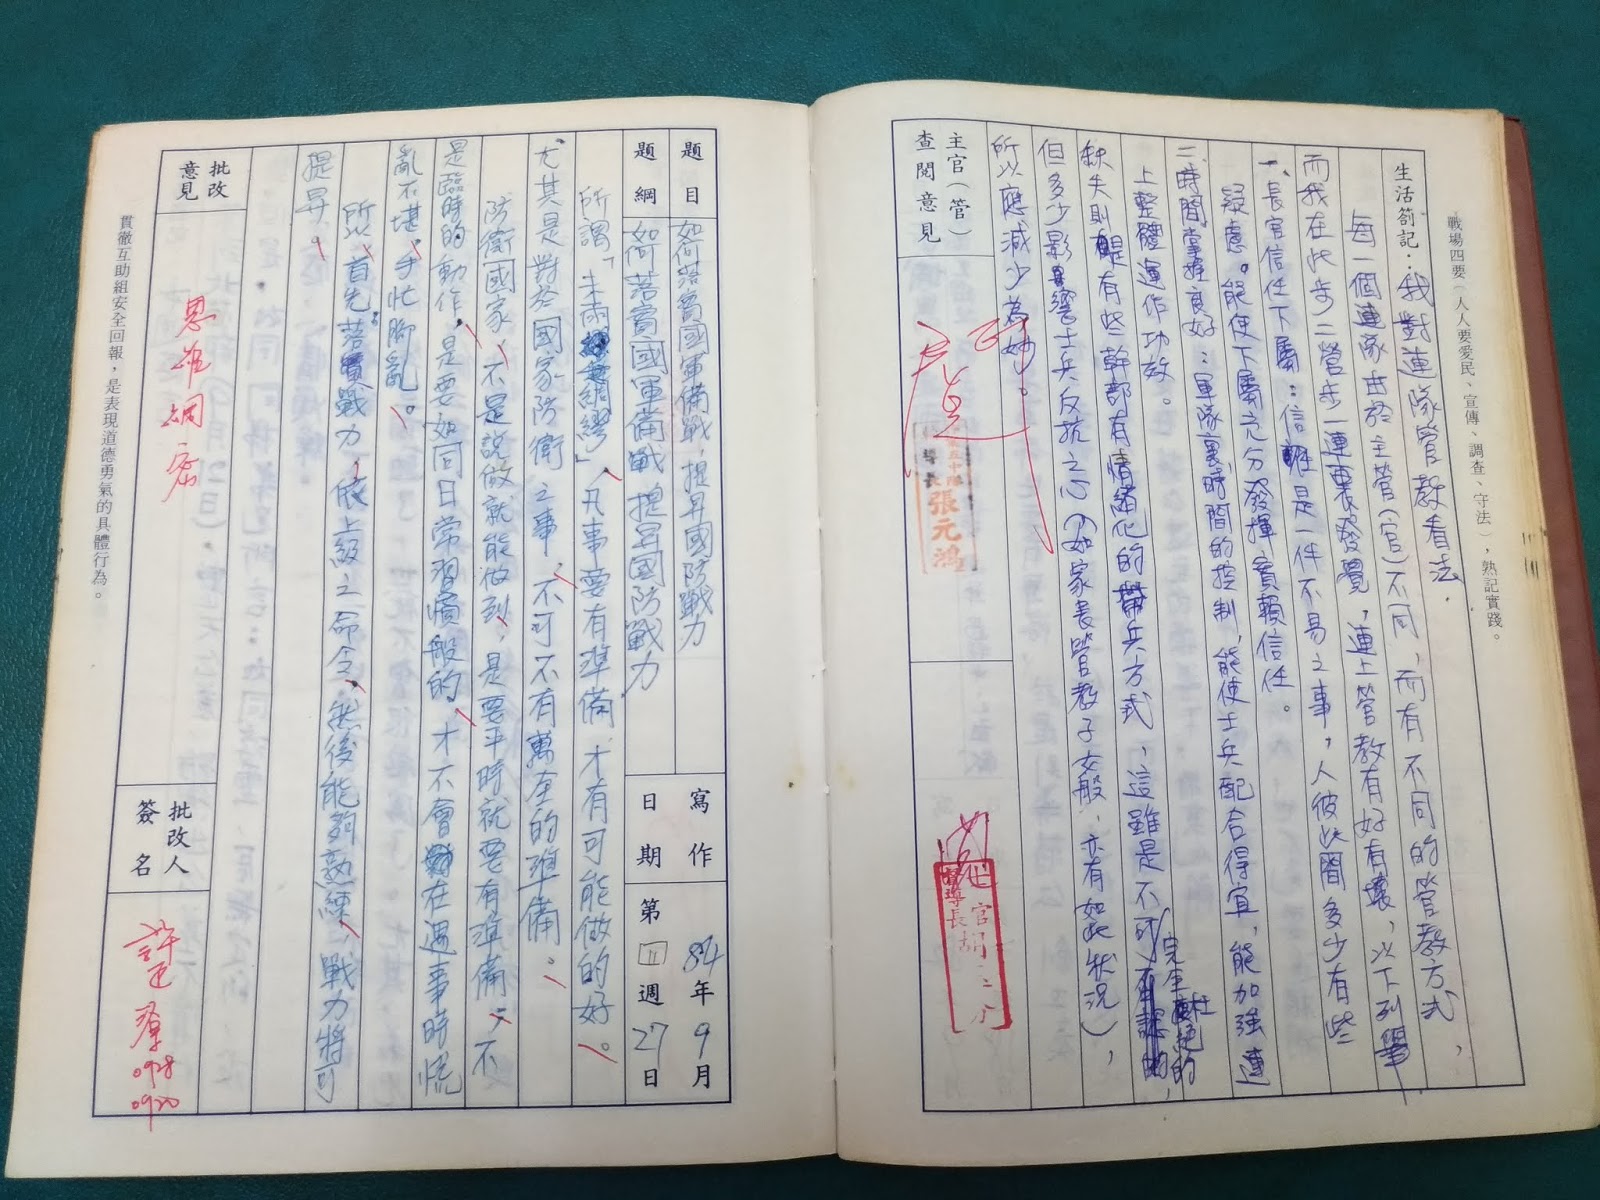 戰場四要（人人要愛民、宣傳、調查、守法），熟記實踐。
生活箚記：我對連隊管教看法
每一個連隊由於主管(官)不同，而有不同的管教方式，
而我在此步二營步一連裏發覺，連上管教有好有壞，以下列舉
一、長官信任下屬：信任是一件不易之事，人彼此間多少有些
疑慮。能使下屬充分發揮實賴信任。
二、時間掌握良好：軍隊裏時間的控制，能使士兵配合得宜，能加強連
上整體運作功效。
缺失則有些幹部有情緒化的帶兵方式，這雖是不可完全杜絕的，
但多少影響士兵反抗之心（如家長管教子女般，亦有如此狀況），
所以應減少為妙。
主官（管）
查閱意見
導長張元鴻
輔導長
題目
如何落實國軍備戰，提昇國防戰力
寫作
84年9月
題綱
如何落實國軍備戰提昇國防戰力
日期
第四週27日
所謂「未雨綢繆」，凡事要有準備，才有可能做的好。
尤其是對於國家防衛之事，不可不有萬全的準備。
防衛國家，不是說做就能做到，是要平時就要有準備，不
是臨時的動作，是要如同日常習慣般的，才不會在遇事時慌
亂不堪，手忙腳亂。
所以，首先落實戰力，依上級之命令，然後能夠熟練，戰力將可
提昇。
批改
意見
思維綢密
批改人
簽名
0928
0920
貫徹互助組安全回報，是表現道德勇氣的具體行為。